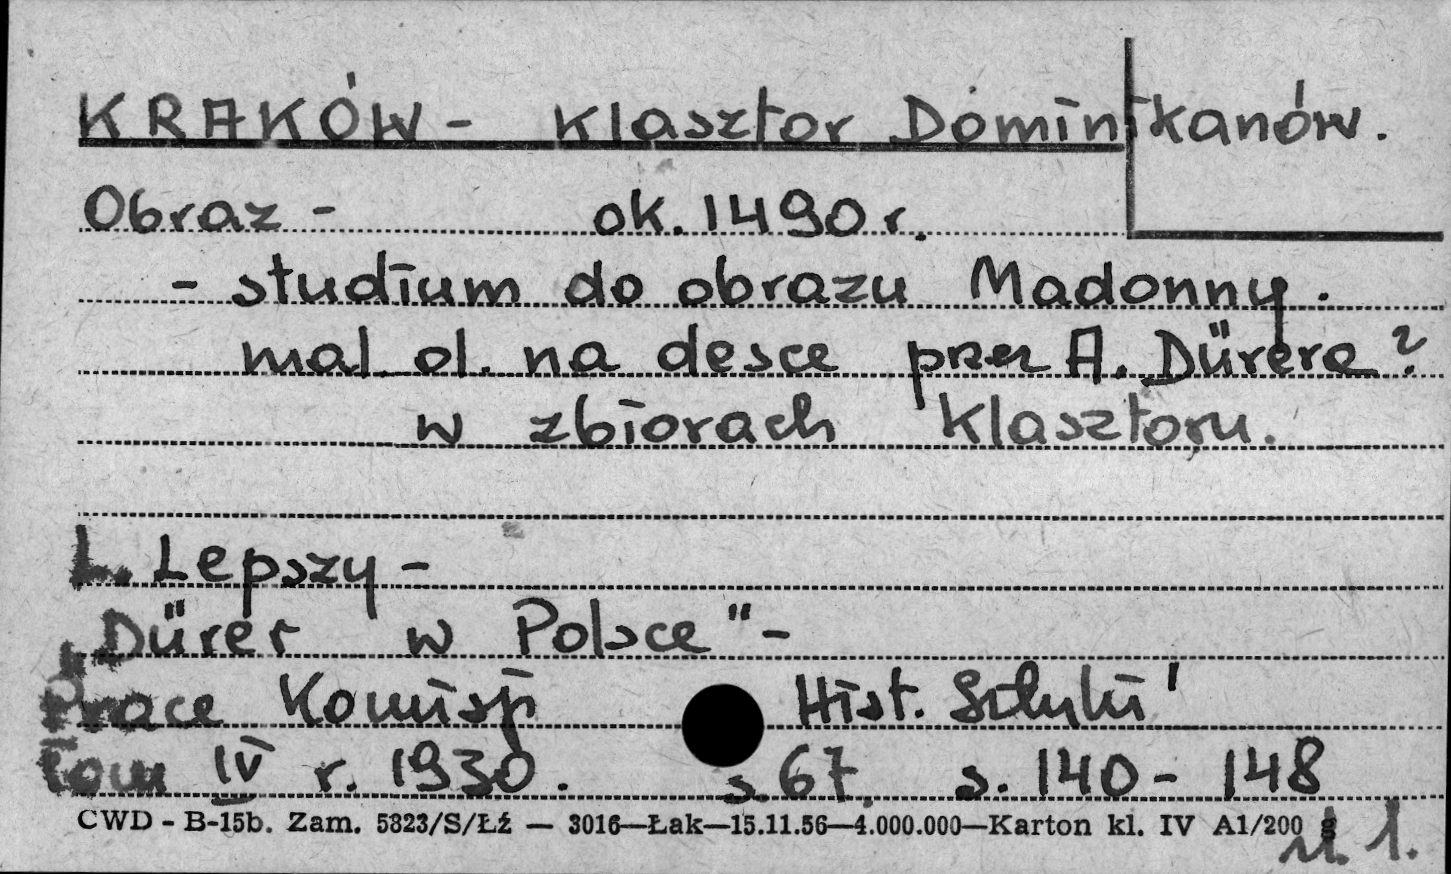 KRAKÓW - Klasztor Dominikanów.
Obraz - ok. 1490 r.
- studium do obrazu Madonny.
mal. ol. na desce przez A. Dürera?
w zbiorach Klasztoru.
L. Lepszy -
„Dürer w Polsce" -
Prace Komisji Hist. Sztuki'
Tom IV r. 1930. s. 67, s. 140 - 148
CWD - B-15b. Zam. 5823/S/Łź — 3016—Łak—15.11.56—4.000.000—Karton kl. IV A1/200 g